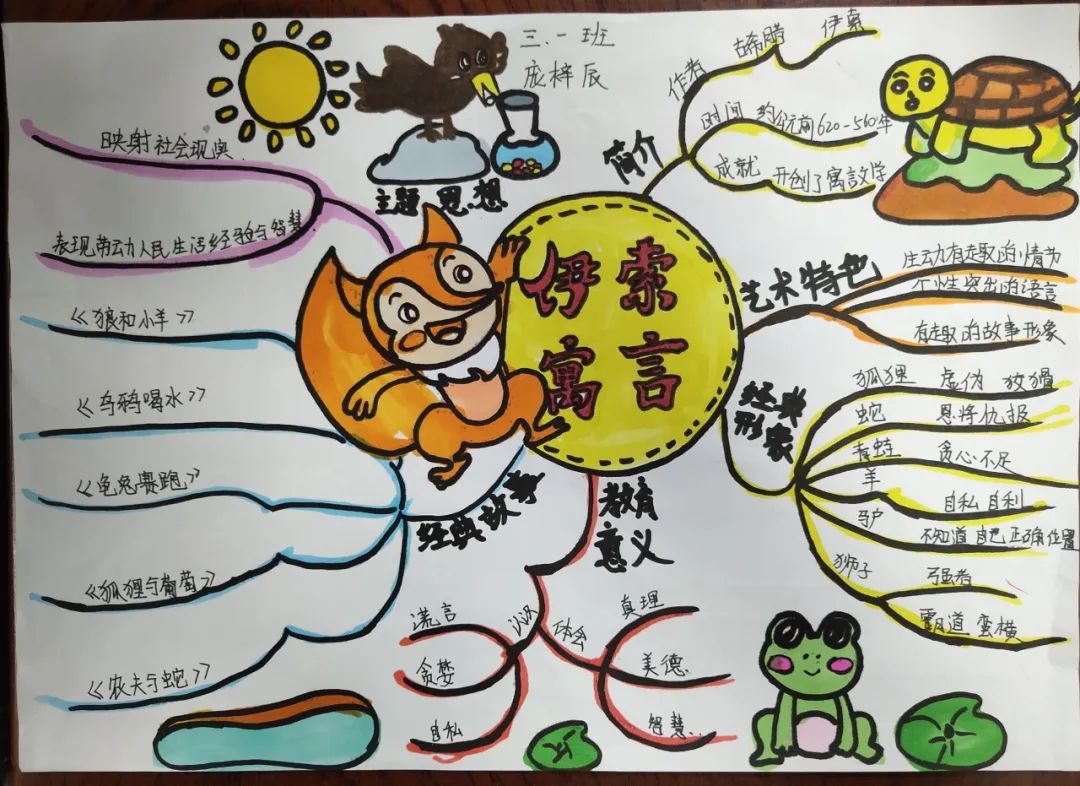 三.一班
庞梓辰
伊索
寓言
简介
作者
古希腊
伊索
时间
约公元前620-560年
成就
开创了寓言文学
艺术特色
生动有趣的情节
个性突出的语言
有趣的故事形象
经典
形象
狐狸
虚伪
狡猾
蛇
恩将仇报
青蛙
贪心不足
羊
自私自利
驴
不知道自己正确位置
狮子
强者
霸道
蛮横
教育
意义
认识
谎言
贪婪
自私
体会
真理
美德
智慧
经典故事
《狼和小羊》
《乌鸦喝水》
《龟兔赛跑》
《狐狸与葡萄》
《农夫与蛇》
主题思想
映射社会现实
表现劳动人民生活经验与智慧